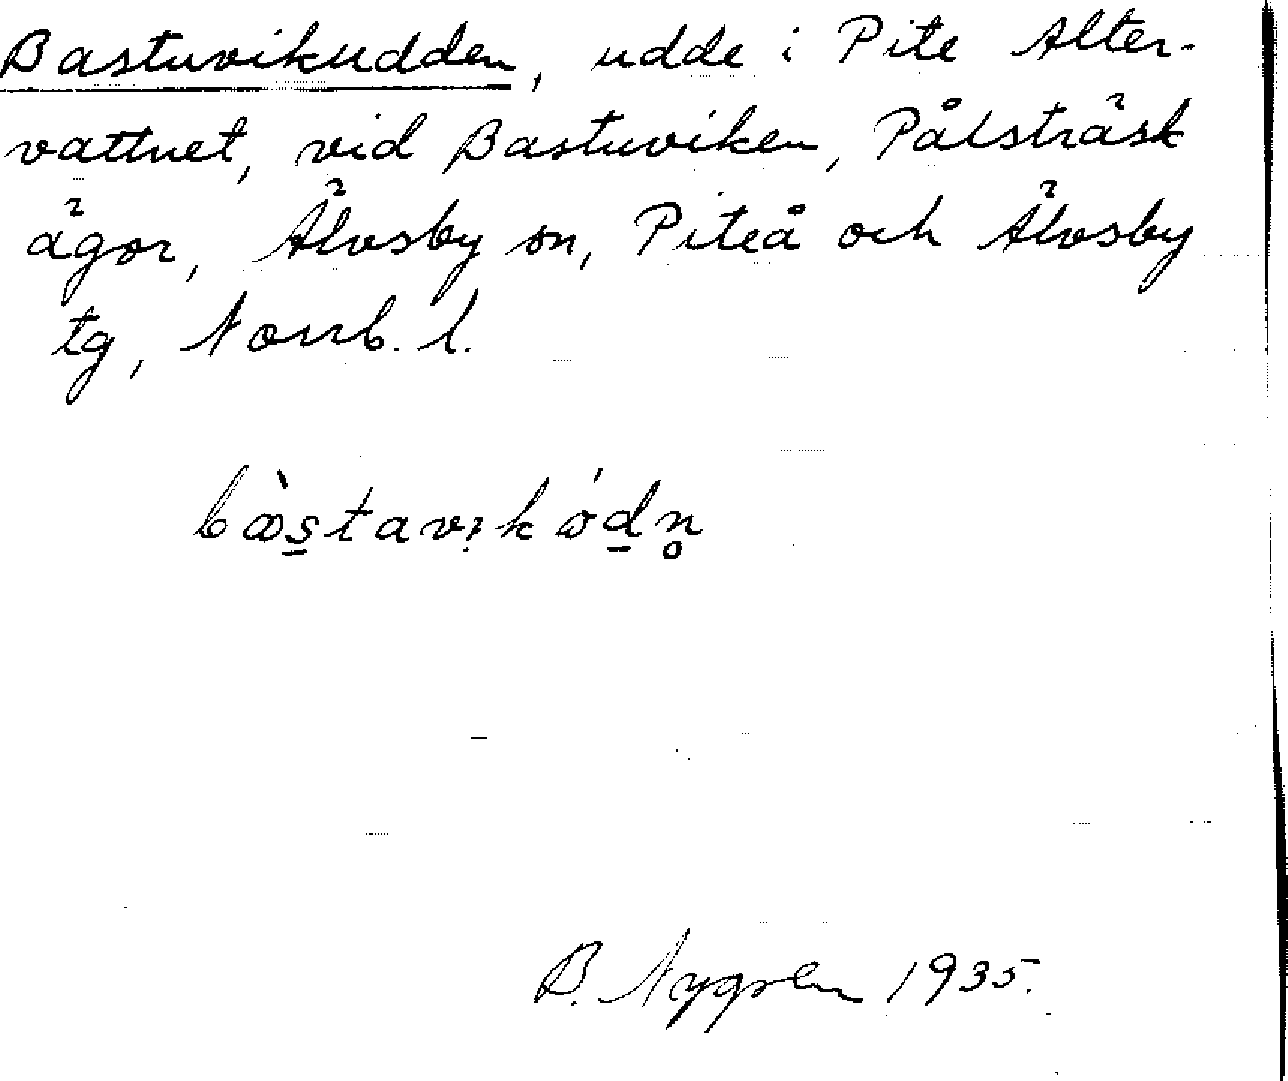 Bastuvikudden, udde i Pite Alter-
vattnet, vid Bastuviken, Pålsträsk
ägor, Älvsby sn, Piteå och Älvsby
tg, Norrb. l.
bàs̱tavikóḏn̥
B. Nygren 1935.